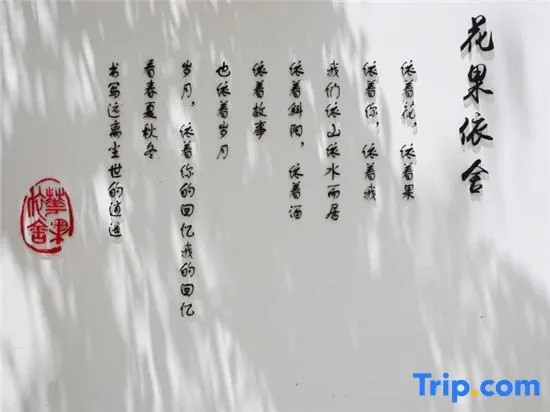 花果依舍
依着花，依着果
依着你，依着我
我们依山依水而居
依着斜阳，依着酒
依着故事
也依着岁月
岁月，依着你的回忆我的回忆
看春夏秋冬
书写远离尘世的逍遥
華果
依舍
Trip.com